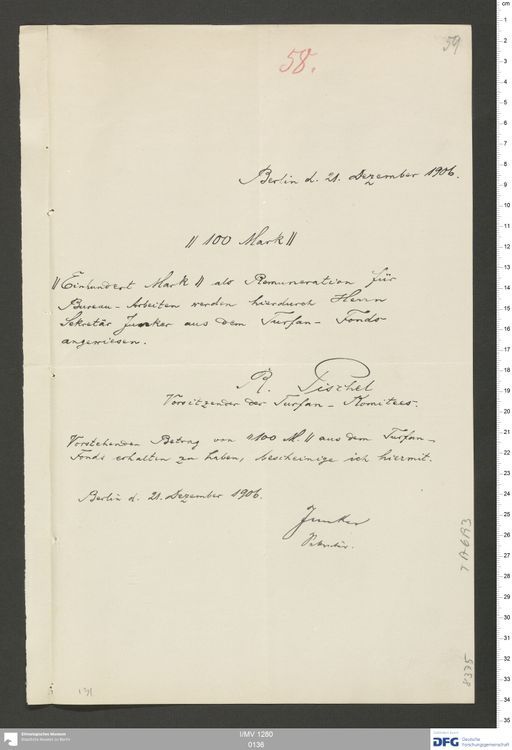 59
58.
Berlin d. 21. Dezember 1906.
// 100 Mark //
// Einhundert Mark // als Remuneration für
Bureau-Arbeiten werden hierdurch Herrn
Sekretär Junker aus dem Turfan-Fonds
angewiesen.
R. Pischel
Vorsitzender des Turfan-Komitees.
Vorstehenden Betrag von //100 M.// aus dem Turfan-
Fonds erhalten zu haben, bescheinige ich hiermit.
Berlin d. 21. Dezember 1906.
Junker
Sekretär.
TA 6193
8335
131
Ethnologisches Museum
Staatliche Museen zu Berlin
I/MV 1280
0136
DFG Deutsche
Forschungsgemeinschaft
cm
1
2
3
4
5
6
7
8
9
10
11
12
13
14
15
16
17
18
19
20
21
22
23
24
25
26
27
28
29
30
31
32
33
34
35